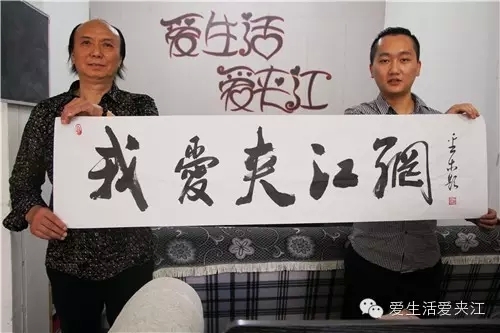 爱生活
爱夹江
我愛夹江網
爱生活爱夹江